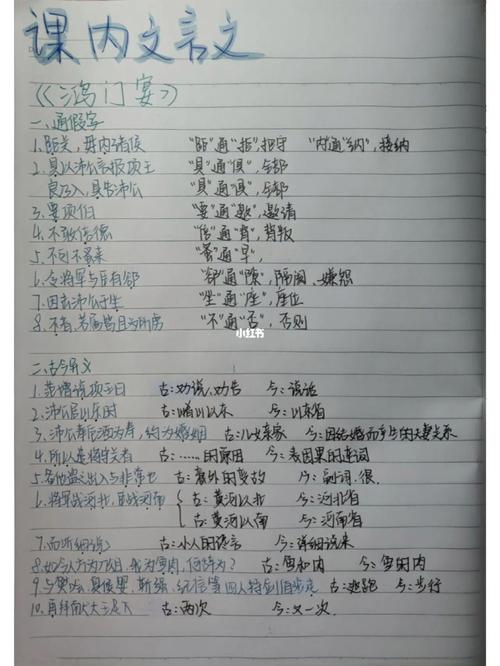 课内文言文
《鸿门宴》
一、通假字
1.距关，毋内诸侯 "距"通"拒"，把守 "内"通"纳"，接纳
2.具以沛公言报项王 "具"通"俱"，全部
良乃入，具告沛公 "具"通"俱"，全部
3.要项伯 "要"通"邀"，邀请
4.不敢倍德 "倍"通"背"，背叛
5.不可不蚤来 "蚤"通"早"，
6.令将军与臣有郤 "郤"通"隙"，隔阂、嫌怨
7.因击沛公于坐 "坐"通"座"，座位
8.不者，若属皆且为所虏 "不"通"否"，否则
小红书
二、古今异义
1.范增说项王曰 古：劝说，劝告 今：说话
2.沛公居山东时 古：崤山以东 今：山东省
3.沛公奉卮酒为寿，约为婚姻 古：儿女亲家 今：因结婚而产生的夫妻关系
4.所以遣将守关者 古：……的原因 今：表因果的连词
5.备他盗之出入与非常也 古：意外的变故 今：副词，很
6.将军战河北，臣战河南 古：黄河以北 今：河北省
古：黄河以南 今：河南省
7.而听细说 古：小人的谗言 今：详细说来
8.如今人方为刀俎，我为鱼肉，何辞为？ 古：鱼和肉 今：鱼的肉
9.与樊哙、夏侯婴、靳强、纪信等四人持剑盾步走 古：逃跑 今：步行
10.再拜献大王足下 古：两次 今：又一次